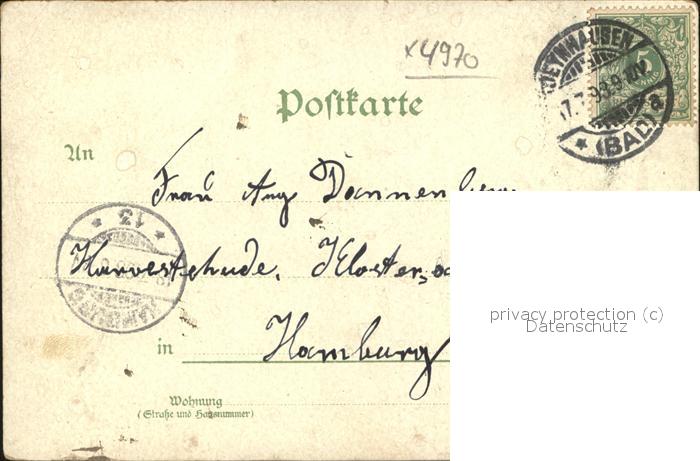 x4970
OEYNHAUSEN
5
17.7.98.9-10V.
* (BAD) a
Postkarte
An
Frau Aug Dannenberg
* 13 *
Harvestehude. Kloster
HAMBURG
in Hamburg
Wohnung
(Straße und Hausnummer)
privacy protection (c)
Datenschutz